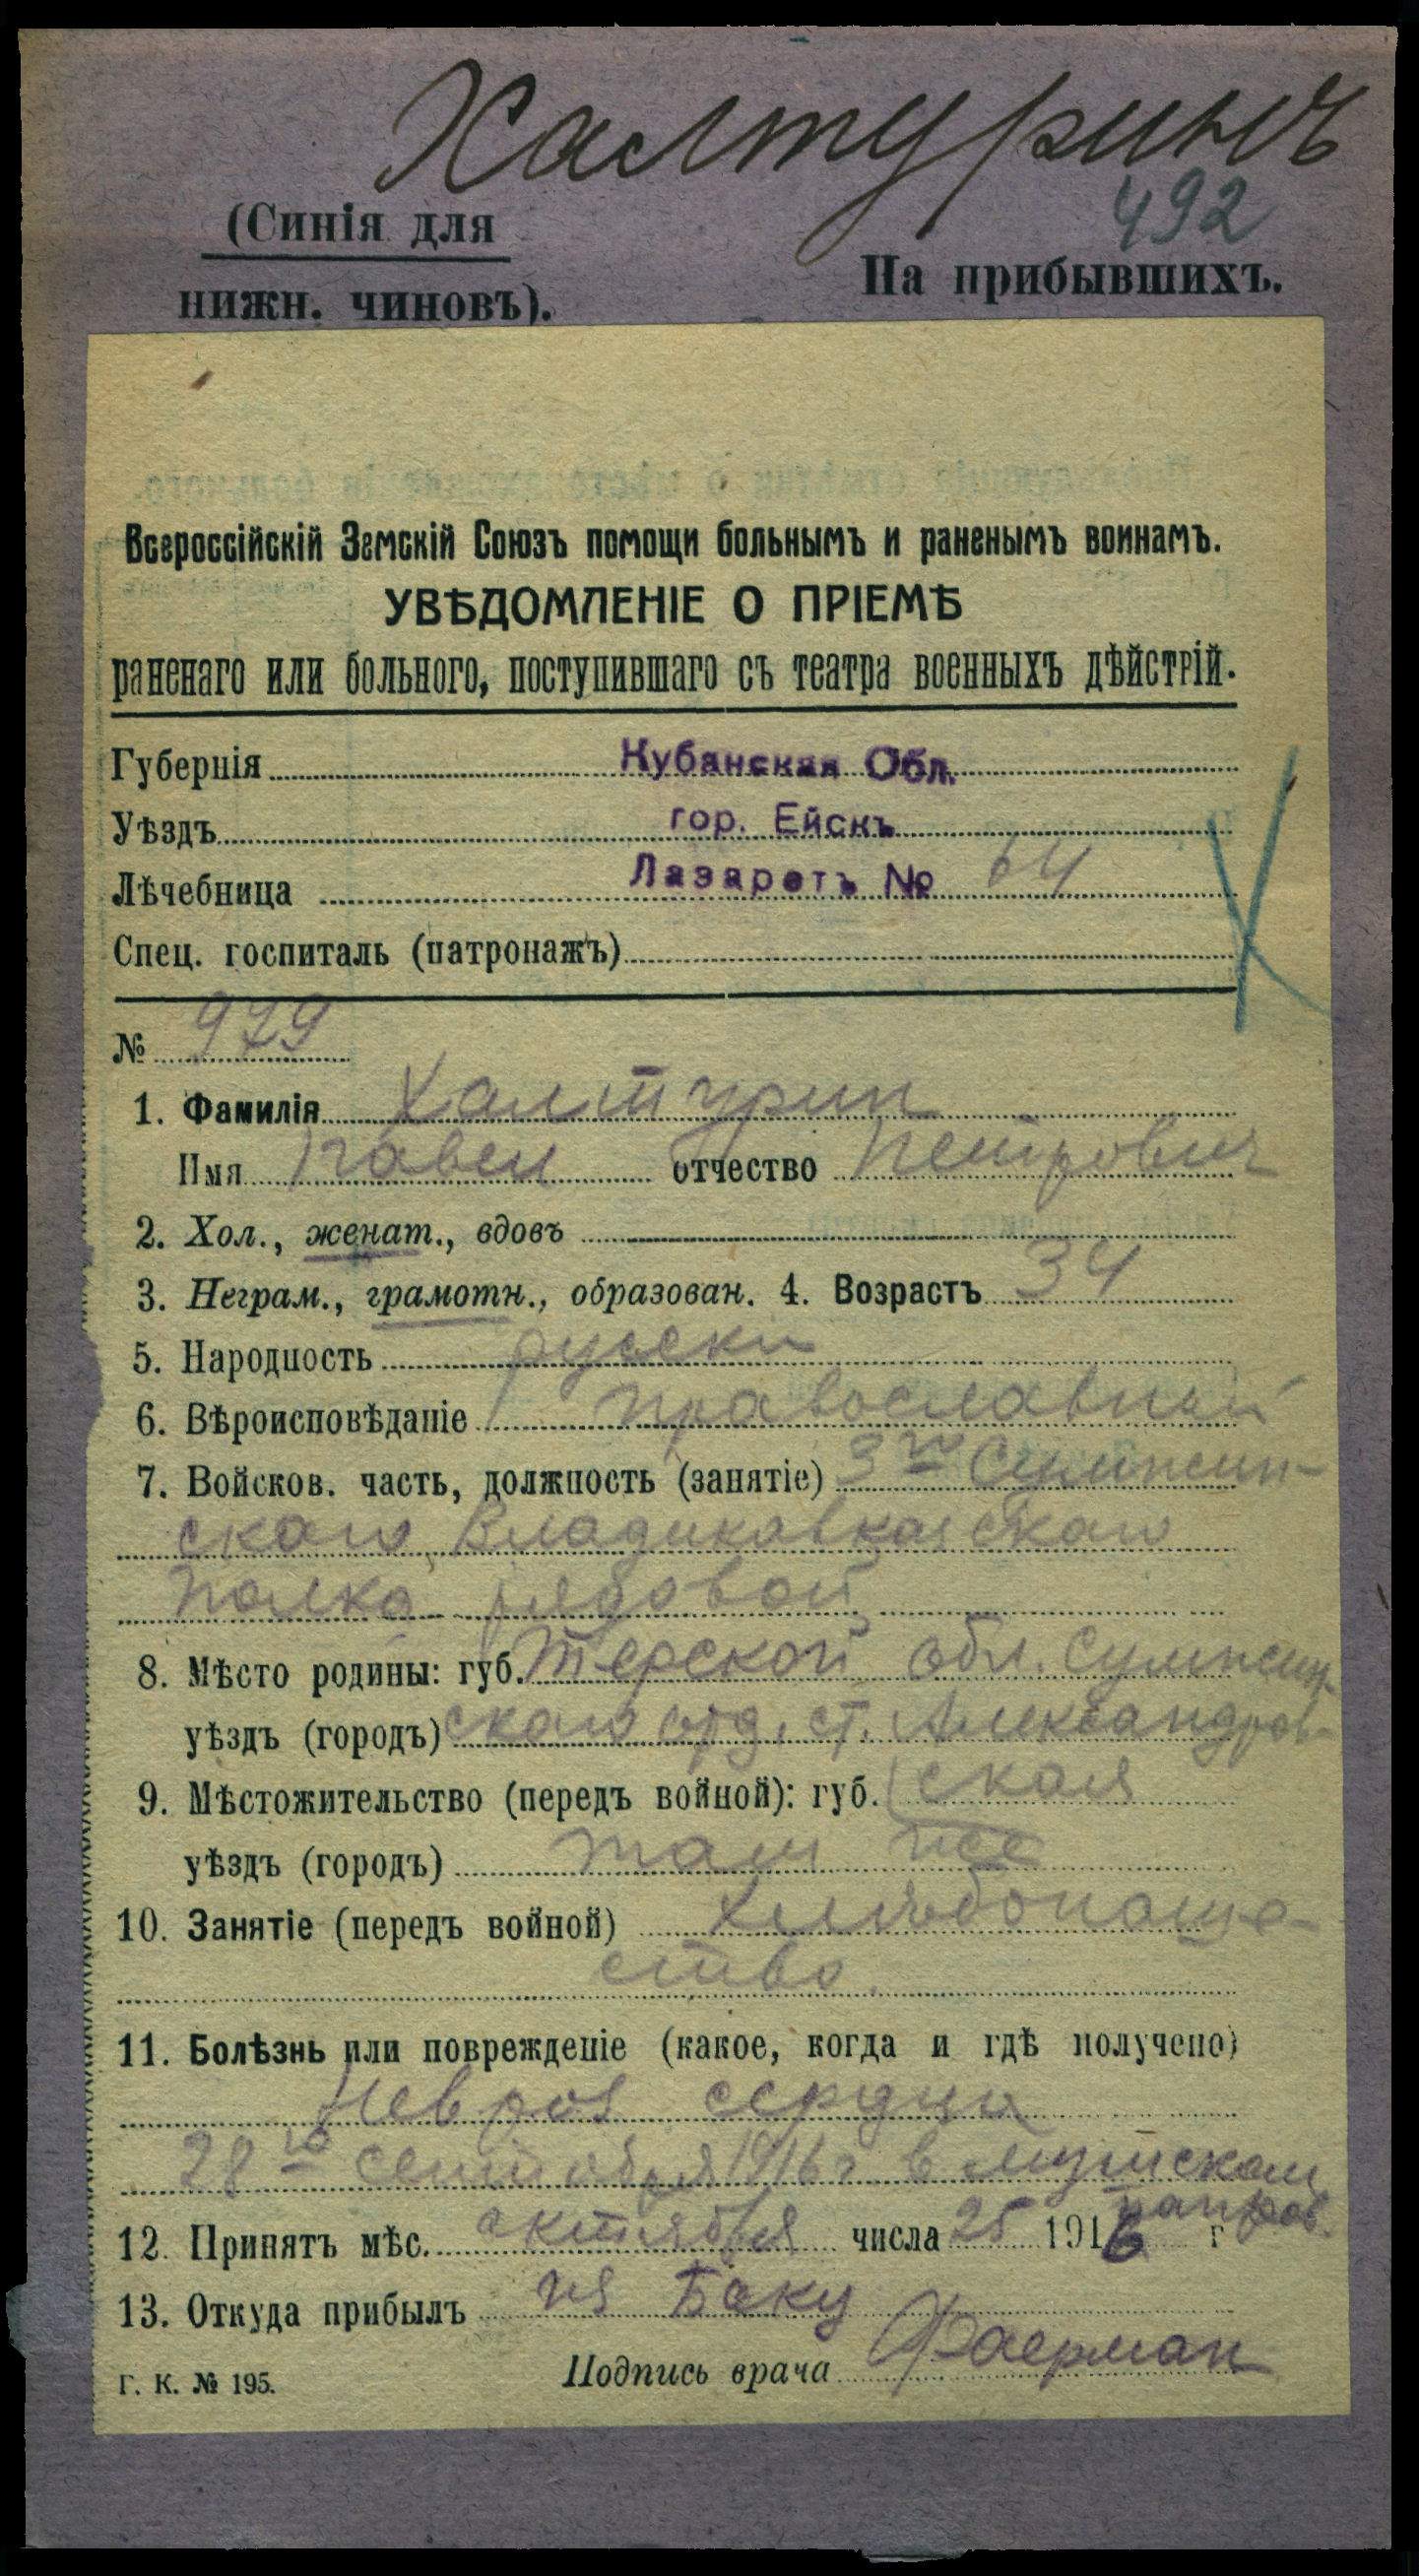 Халтуринъ
492
(Синія для
нижн. чиновъ).
На прибывшихъ.
Всероссійскій Земскій Союзъ помощи больнымъ и раненымъ воинамъ.
УВѢДОМЛЕНІЕ О ПРІЕМѢ
раненаго или больного, поступившаго съ театра военныхъ дѣйстрій.
Губернія Кубанская Обл.
Уѣздъ гор. Ейскъ
Лѣчебница Лазаретъ № 64
Спец. госпиталь (патронажъ)
№ 979
1. Фамилія Халтурин
Имя Павел отчество Петрович
2. Хол., женат., вдовъ
3. Неграм., грамотн., образован. 4. Возрастъ 34
5. Народность русски
6. Вѣроисповѣданіе православный
7. Войсков. часть, должность (занятіе) 3го Сунжен-
скаго Владикавказскаго
полка рядовой
8. Мѣсто родины: губ. Терской обл. Сунжен-
уѣздъ (городъ) скаго отд. ст. Александров-
9. Мѣстожительство (передъ войной): губ. ская
уѣздъ (городъ) там же
10. Занятіе (передъ войной) хлѣбопаше-
ство
11. Болѣзнь или поврежденіе (какое, когда и гдѣ получено)
Невроз сердца
28го сентября 1916 г в мушском
направ.
12. Принятъ мѣс. октября числа 25 1916 г
13. Откуда прибылъ из Баку
Г. К. № 195. Подпись врача Фаерман